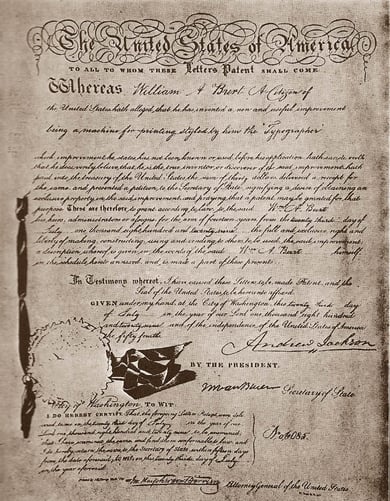 The United States of America
TO ALL TO WHOM THESE Letters Patent SHALL COME
Whereas William A Burt A Citizen of
the United States hath alleged, that he has invented a new and useful improvement
being a machine for printing styled by him the "Typographer
which improvement he states has not been known or used before his application hath
paid into the treasury of the United States, the sum of thirty dollars, delivered a receipt for
the same and presented a petition to the Secretary of State, signifying a desire of obtaining an
exclusive property in the said improvement, and praying that a patent may be granted for that
purpose. These are therefore to grant according to law, to the said Wm A. Burt
his heirs, administrators or assigns for the term of fourteen years, from the twenty third day of
July one thousand eight hundred and twenty nine the full and exclusive right and
liberty of making, constructing, using and vending to others to be used, the said improvement
a description whereof is given in the words of the said Wm A. Burt himself
in the schedule hereto annexed, and is made a part of these presents.
In Testimony whereof, I have caused these Letters to be made Patent, and the
Seal of the United States to be hereunto affixed.
GIVEN under my hand, at the City of Washington, this twenty third day
of July in the year of our Lord one thousand eight hundred
and twenty nine and of the independence of the United States of America
fifty fourth
Andrew Jackson
BY THE PRESIDENT.
Secretary of State
City of Washington, TO WIT:
I DO HEREBY CERTIFY, That the foregoing Letters Patent were
to me on the twenty third day of July in the year of our
Lord one thousand eight hundred and twenty nine to be examined
that I have examined the same and find them conformable to law, and
I do hereby return the same to the Secretary of State, within fifteen days
from the date aforesaid, to wit, on this twenty third day of July
in the year aforesaid
Attorney General of the United States